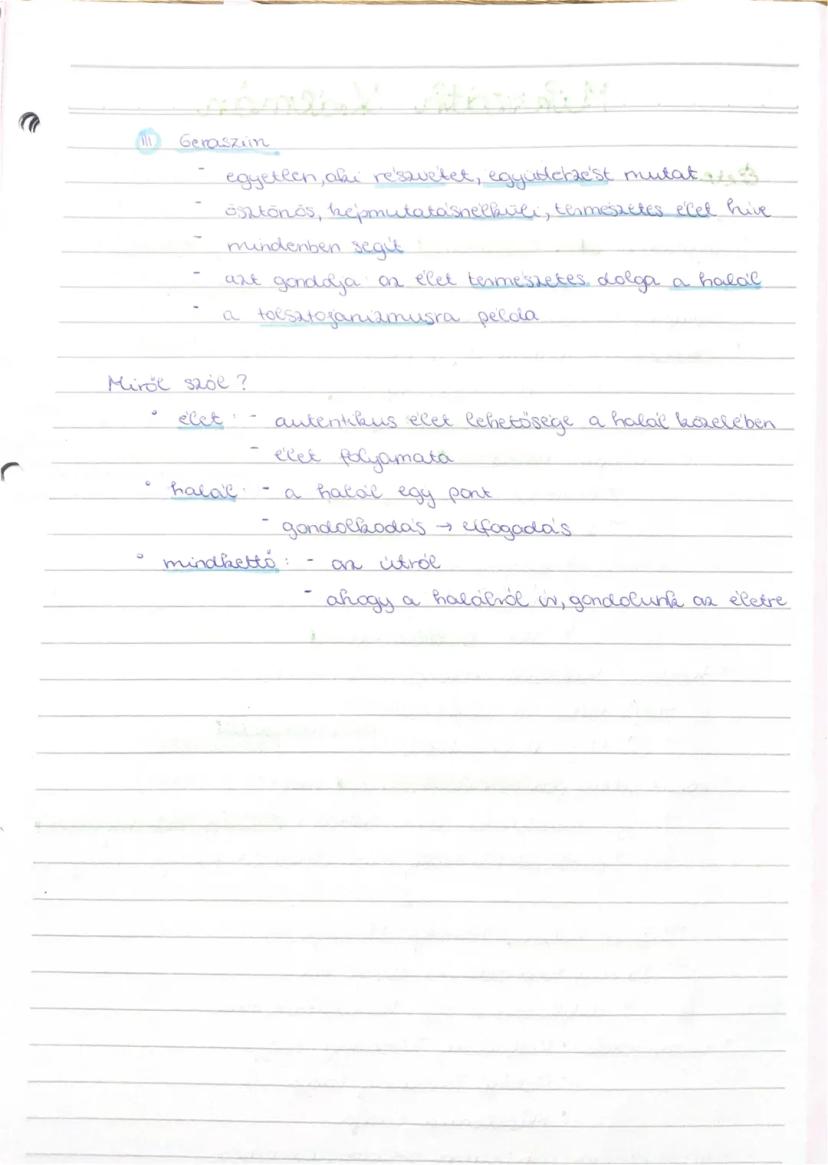 III Geraszim
- egyetlen, aki részvétet, együttérzést mutat
- ösztönös, képmutatásnélküli, természetes élet híve
- mindenben segít
- azt gondolja az élet természetes dolga a halál
- a tolsztojanizmusra példa
Miről szól?
• élet: - autentikus élet lehetősége a halál közelében
- élet folyamata
• halál: - a halál egy pont
- gondolkodás → elfogadás
• mindkettő: - az útról
- ahogy a halálról ír, gondolunk az életre